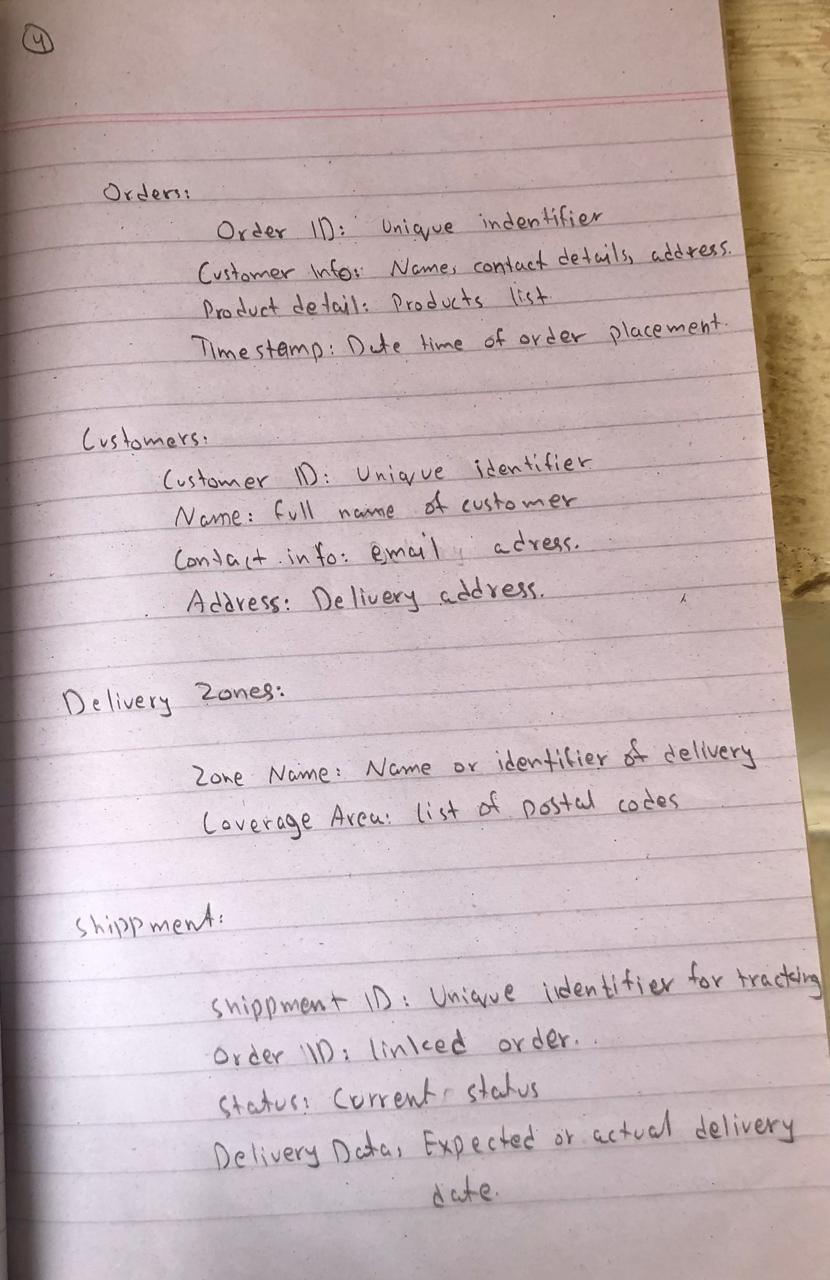 4
Orders:
Order ID: Unique indentifier
Customer Info: Name, contact details, address.
Product detail: Products list.
Timestamp: Date time of order placement.
Customers:
Customer ID: Unique identifier
Name: full name of customer
Contact info: email, adress.
Address: Delivery address.
Delivery Zones:
Zone Name: Name or identifier of delivery
Coverage Area: list of postal codes
Shippment:
Shippment ID: Unique identifier for tracking
Order ID: linked order.
Status: Current status
Delivery Data, Expected or actual delivery
date.